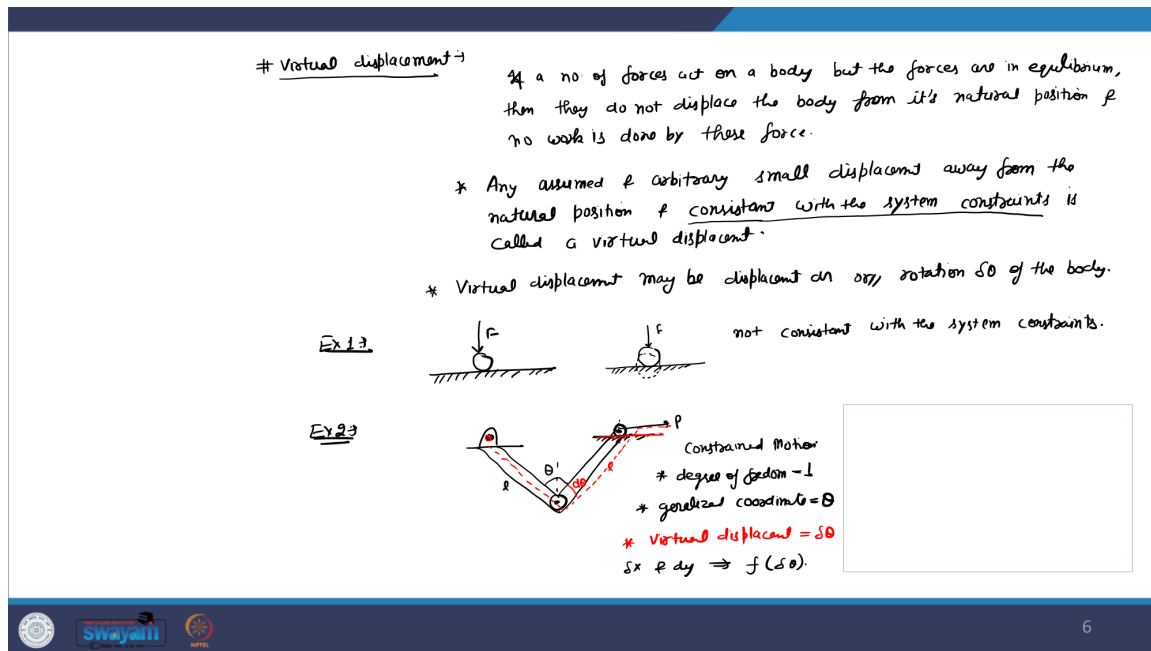 # Virtual displacement :→
If a no. of forces act on a body but the forces are in equlibrium,
then they do not displace the body from it's natural position &
no work is done by these force.
* Any assumed & arbitrary small displacemt away from the
natural position & consistant with the system constraints is
called a virtual displacent.
* Virtual displacemt may be displacent dr or// rotation δθ of the body.
Ex 1:→
F
F
not consistant with the system constraints.
Ex 2:→
P
θ'
dθ
l
l
Constrained Motion
* degree of fredom - 1
* generelized coordinate = θ
* Virtual displacent = δθ
δx & dy ⇒ f(δθ).
swayam
NPTEL
6